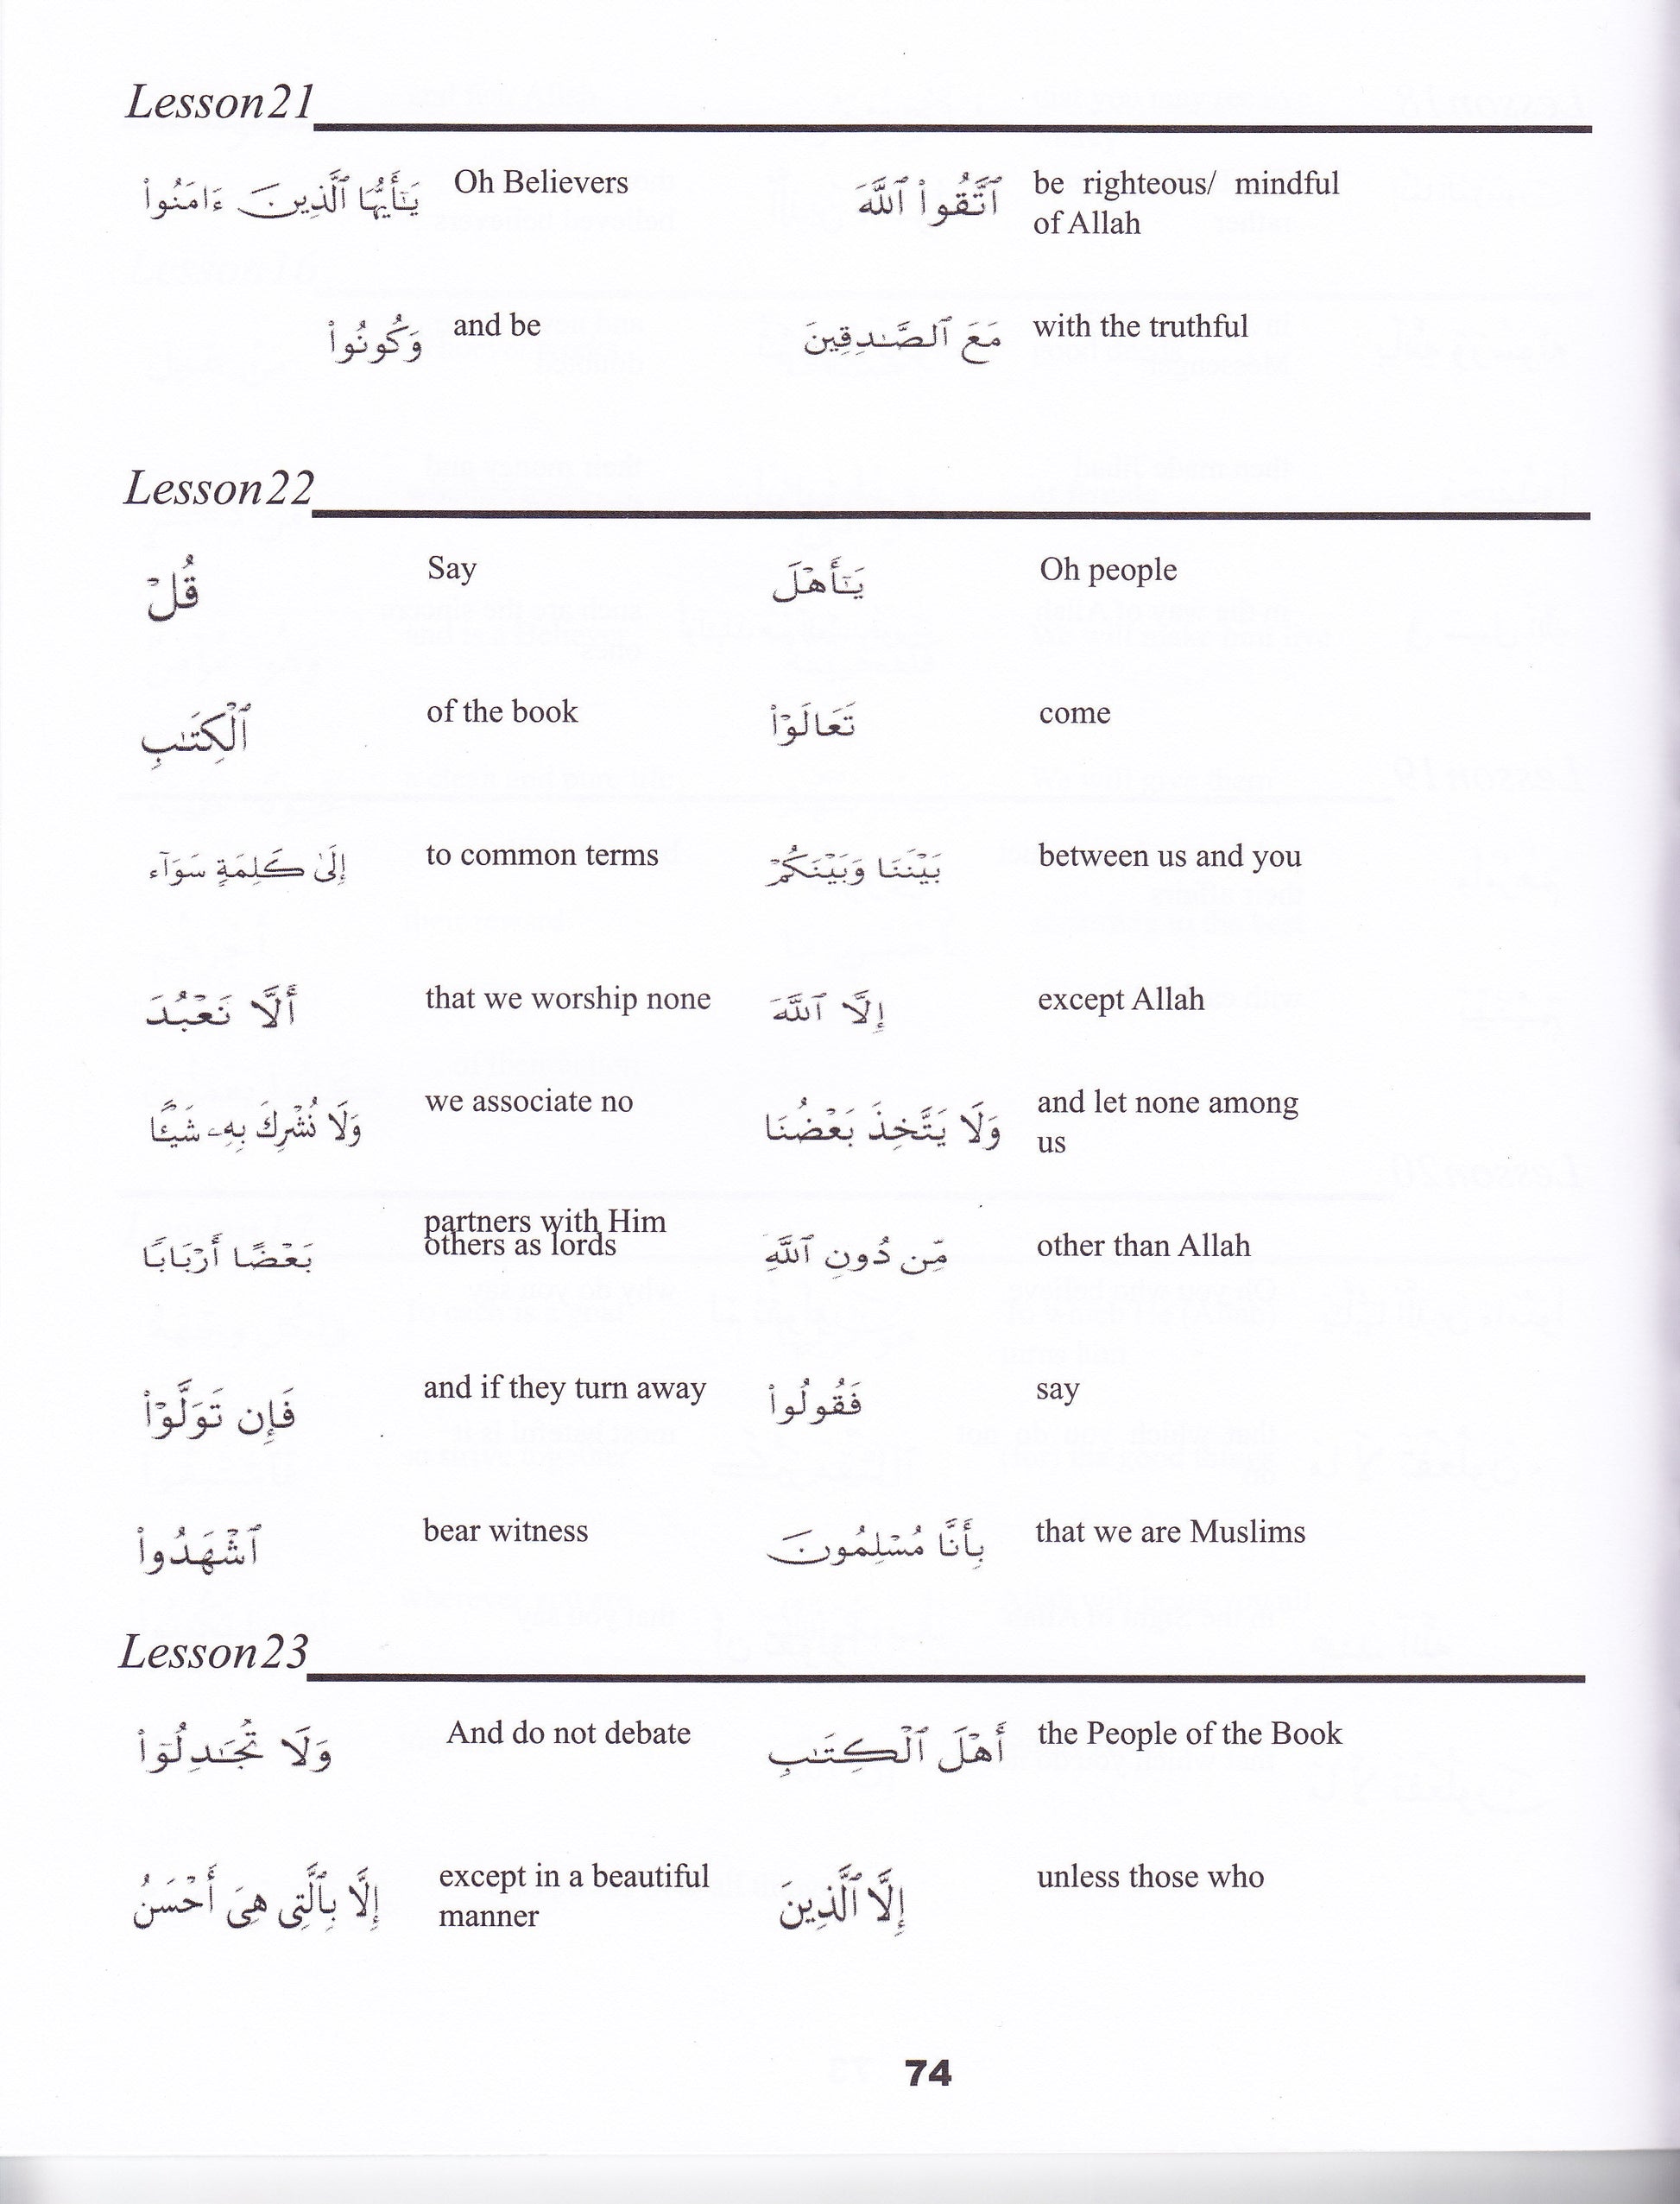 Lesson21
يَـٰٓأَيُّهَا ٱلَّذِينَ ءَامَنُوا۟ Oh Believers ٱتَّقُوا۟ ٱللَّهَ be righteous/ mindful
of Allah
وَكُونُوا۟ and be مَعَ ٱلصَّـٰدِقِينَ with the truthful
Lesson22
قُلْ Say يَـٰٓأَهْلَ Oh people
ٱلْكِتَـٰبِ of the book تَعَالَوْا۟ come
إِلَىٰ كَلِمَةٍ سَوَآء to common terms بَيْنَنَا وَبَيْنَكُمْ between us and you
أَلَّا نَعْبُدَ that we worship none إِلَّا ٱللَّهَ except Allah
وَلَا نُشْرِكَ بِهِۦ شَيْـًٔا we associate no وَلَا يَتَّخِذَ بَعْضُنَا and let none among
us
partners with Him
بَعْضًا أَرْبَابًا others as lords مِّن دُونِ ٱللَّهِ other than Allah
فَإِن تَوَلَّوْا۟ and if they turn away فَقُولُوا۟ say
ٱشْهَدُوا۟ bear witness بِأَنَّا مُسْلِمُونَ that we are Muslims
Lesson23
وَلَا تُجَـٰدِلُوٓا۟ And do not debate أَهْلَ ٱلْكِتَـٰبِ the People of the Book
إِلَّا بِٱلَّتِى هِىَ أَحْسَنُ except in a beautiful إِلَّا ٱلَّذِينَ unless those who
manner
74